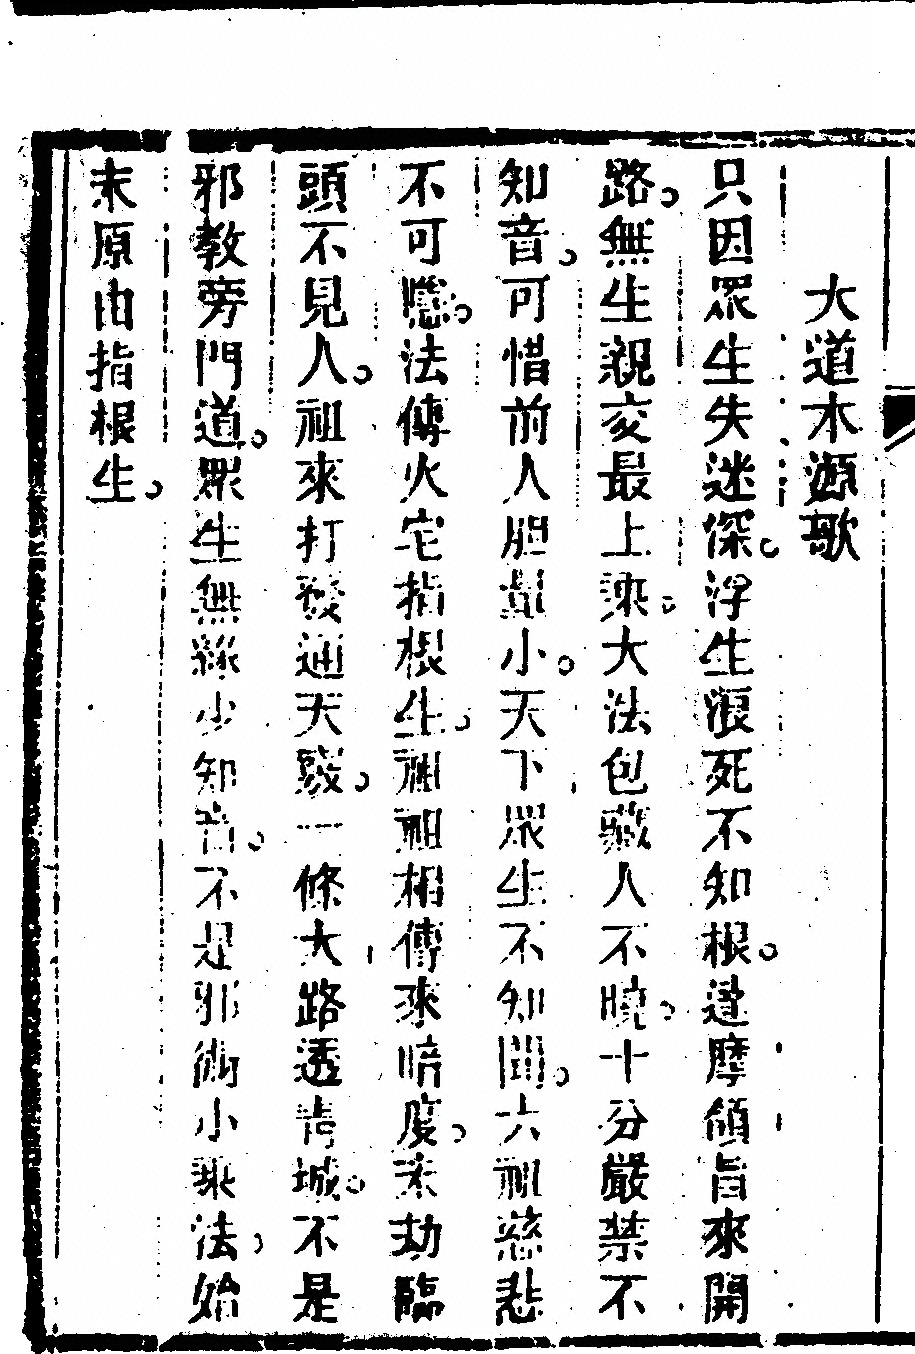 大道本源歌
只因眾生失迷深。浮生浪死不知根。達摩領旨來開
路。無生親交最上乘。大法包藏人不曉。十分嚴禁不
知音。可惜前人胆量小。天下眾生不知聞。六祖慈悲
不可隱。法傳火宅指根生。祖祖相傳來暗度。末劫臨
頭不見人。祖來打發通天竅。一條大路透青城。不是
邪教旁門道。眾生無緣少知音。不是邪術小乘法。始
末原由指根生。